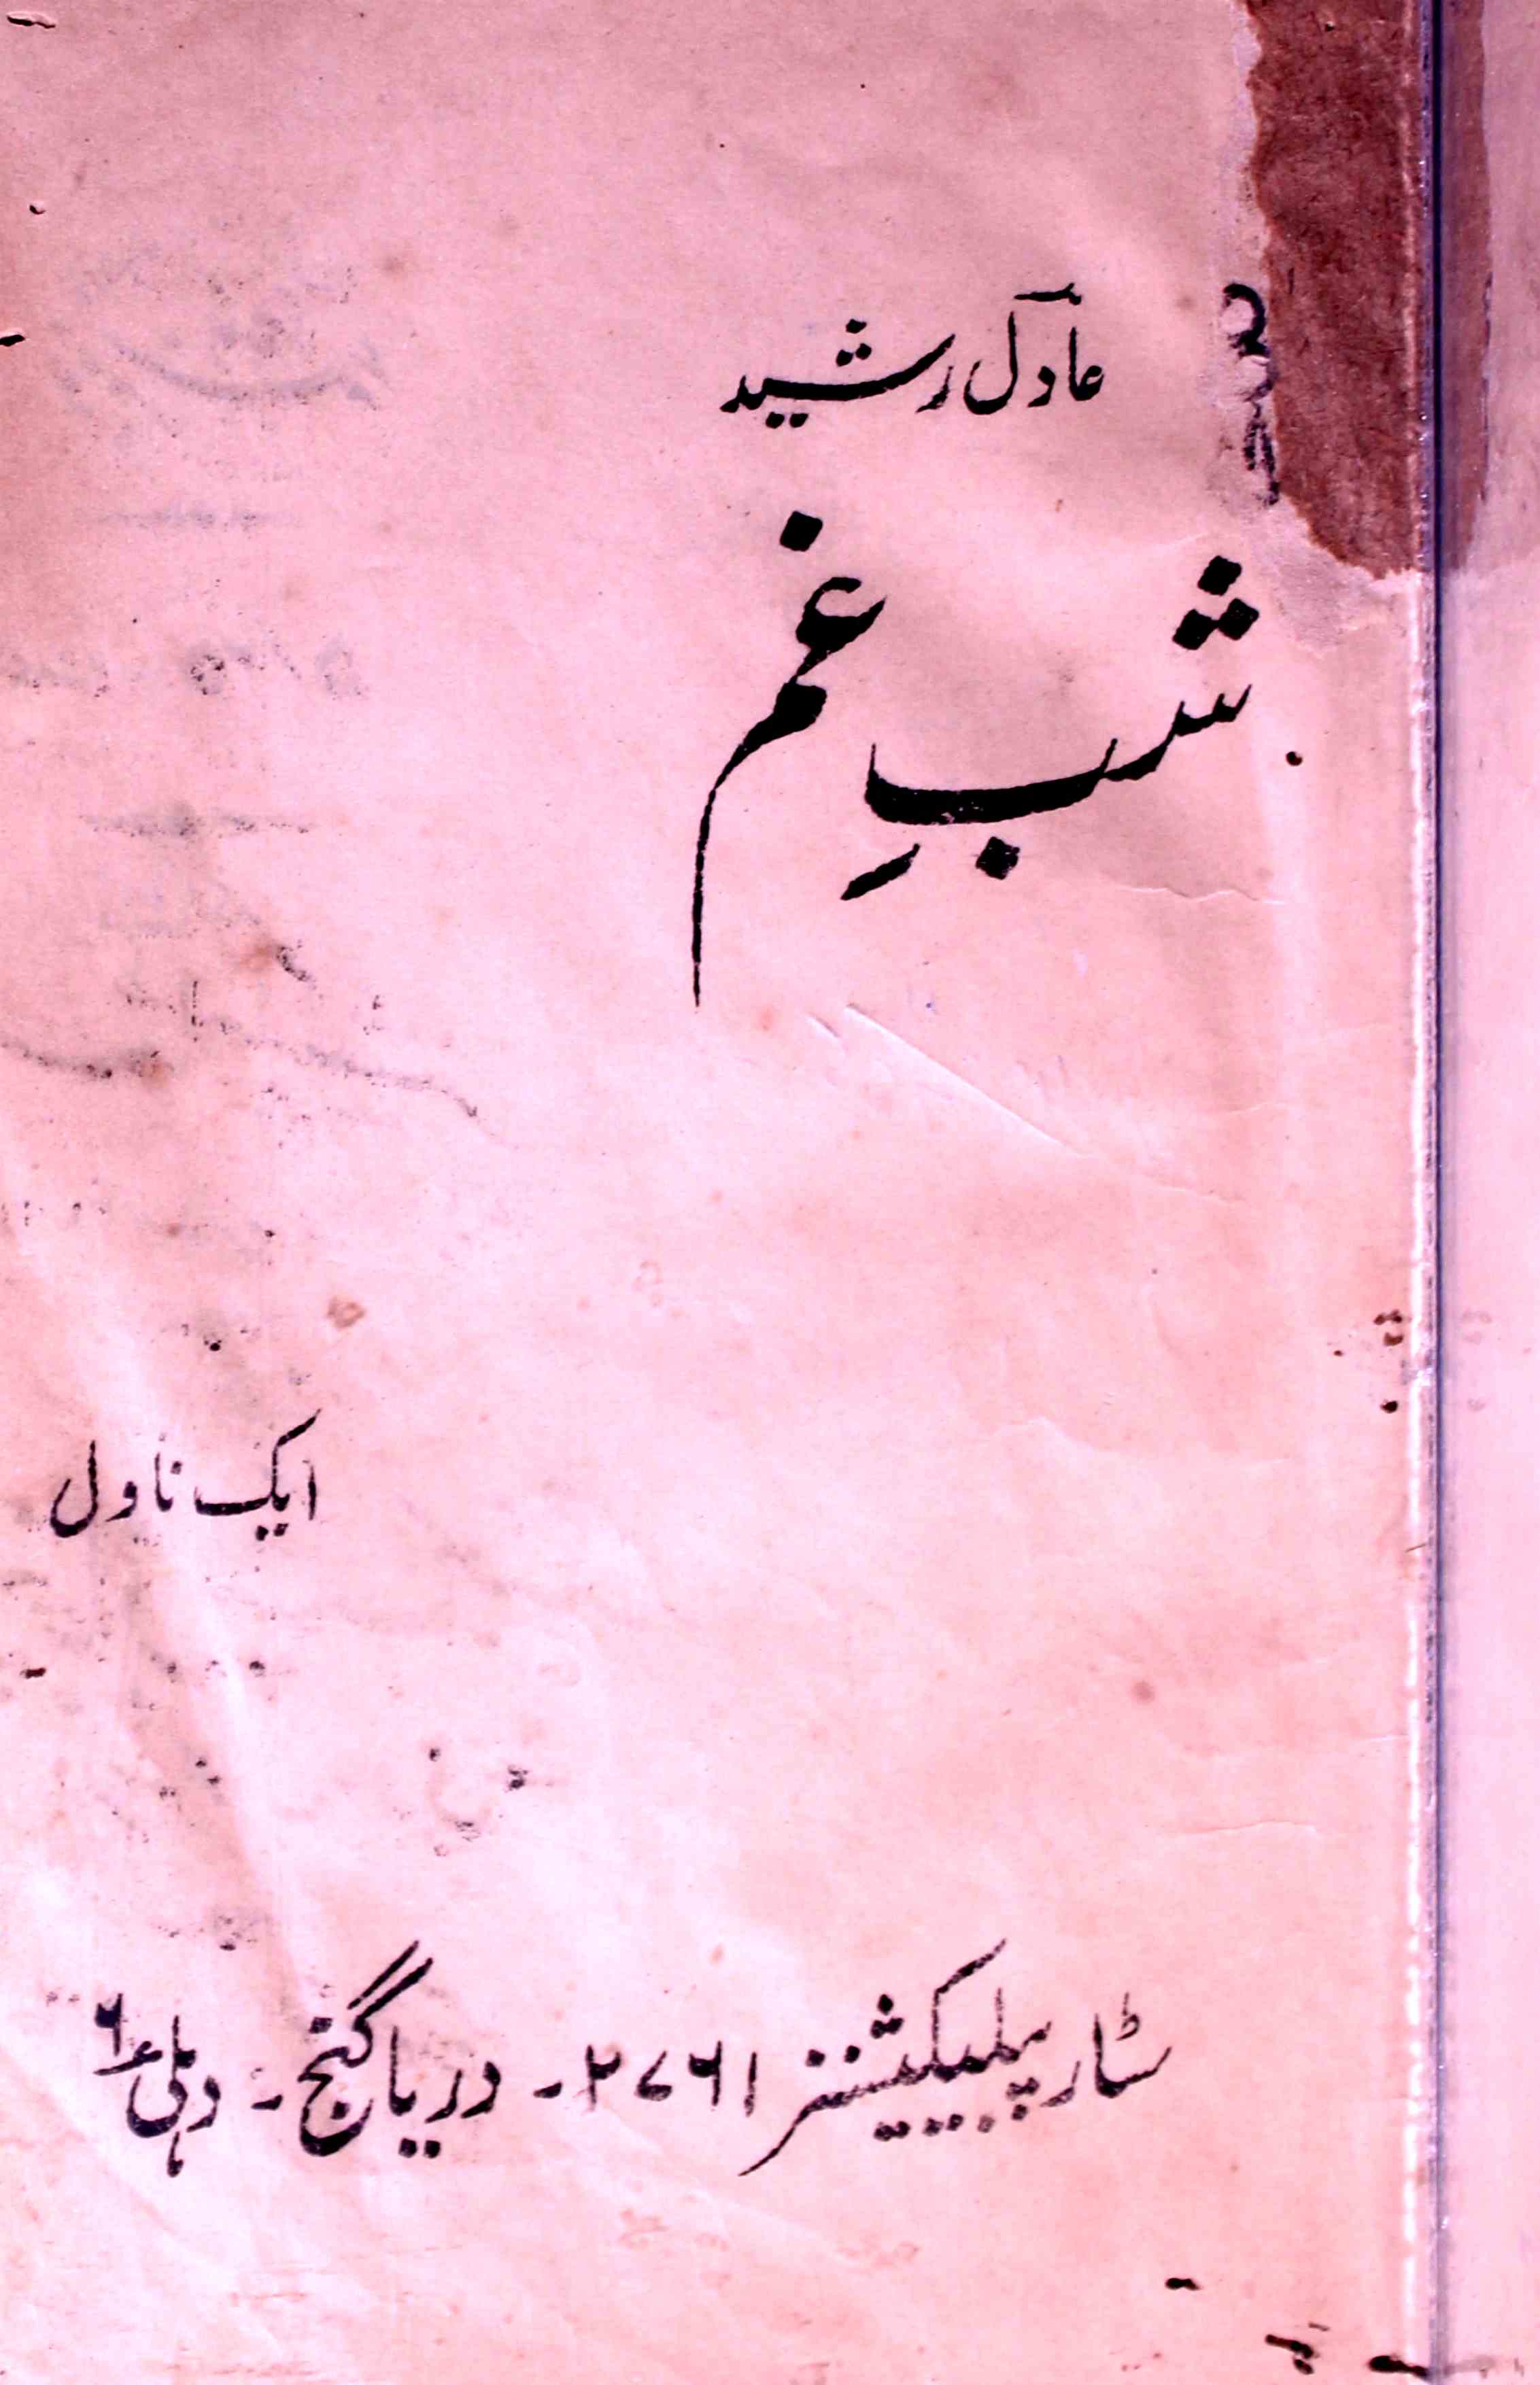 عادل رشید
شبِ غم
ایک ناول
سٹار پبلیکیشنز ۲۷۶۱۔ دریا گنج۔ دہلی ۶